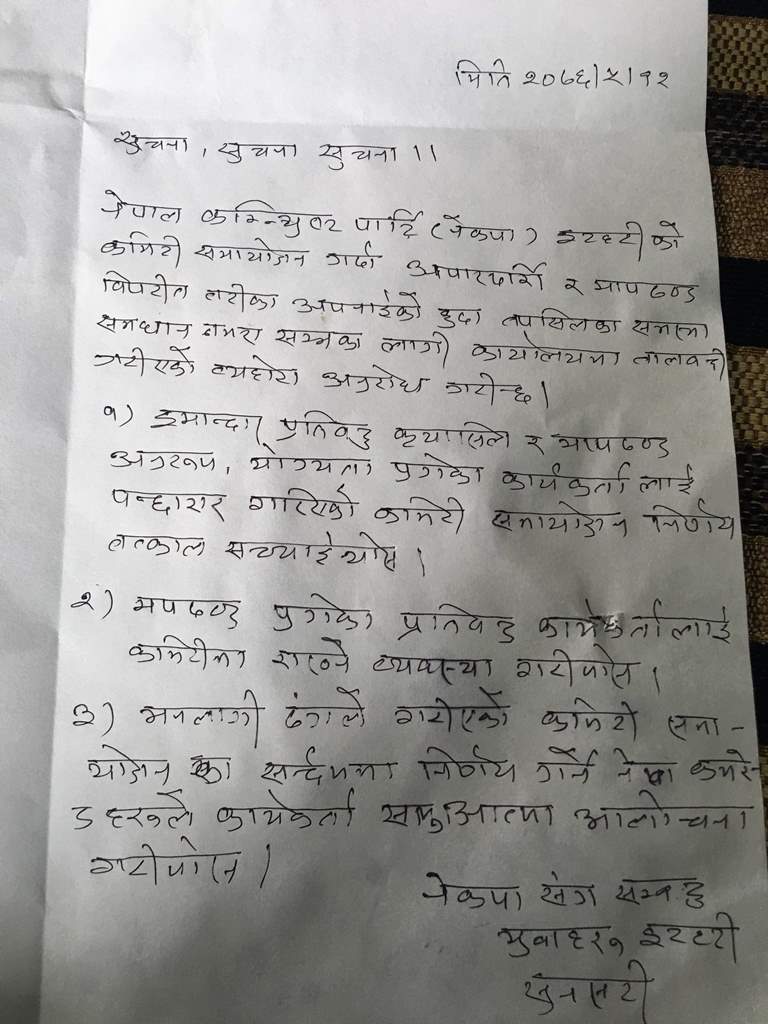 मिति २०७६/५/१२
सुचना, सुचना सुचना ।।
नेपाल कम्युनिष्ट पार्टि (नेकपा) इटहरीको
कमिटी समायोजन गर्दा अपारदर्शि र मापदण्ड
विपरीत तरीका अपनाईको हुदा तपसिलका समस्या
समधान नभए सम्मका लागी कार्यालयमा तालाबन्दी
गरीएको व्यहोरा अनुरोध गरीन्छ।
१) इमान्दार प्रतिवद्ध क्रयासिल र मापदण्ड
अनुरूप, योग्यता पुगेका कार्यकर्ता लाई
पन्छाएर गारिएको कमिटी समायोजन निर्णय
तत्काल सच्याईयोस।
२) मपदण्ड पुगेका प्रतिवद्ध कार्यकर्तालाई
कमिटीमा राख्ने व्यवस्था गरीयोस।
३) मनलागी ढंगले गरीएको कमिटी समा-
योजन का सर्न्दभमा निर्णय गर्ने नेता कमरे-
डहरूले कार्यकर्ता सामुआत्मा आलोचना
गरीयोस।
नेकपा संग सम्वद्ध
युवाहरू इटहरी
सुनसरी